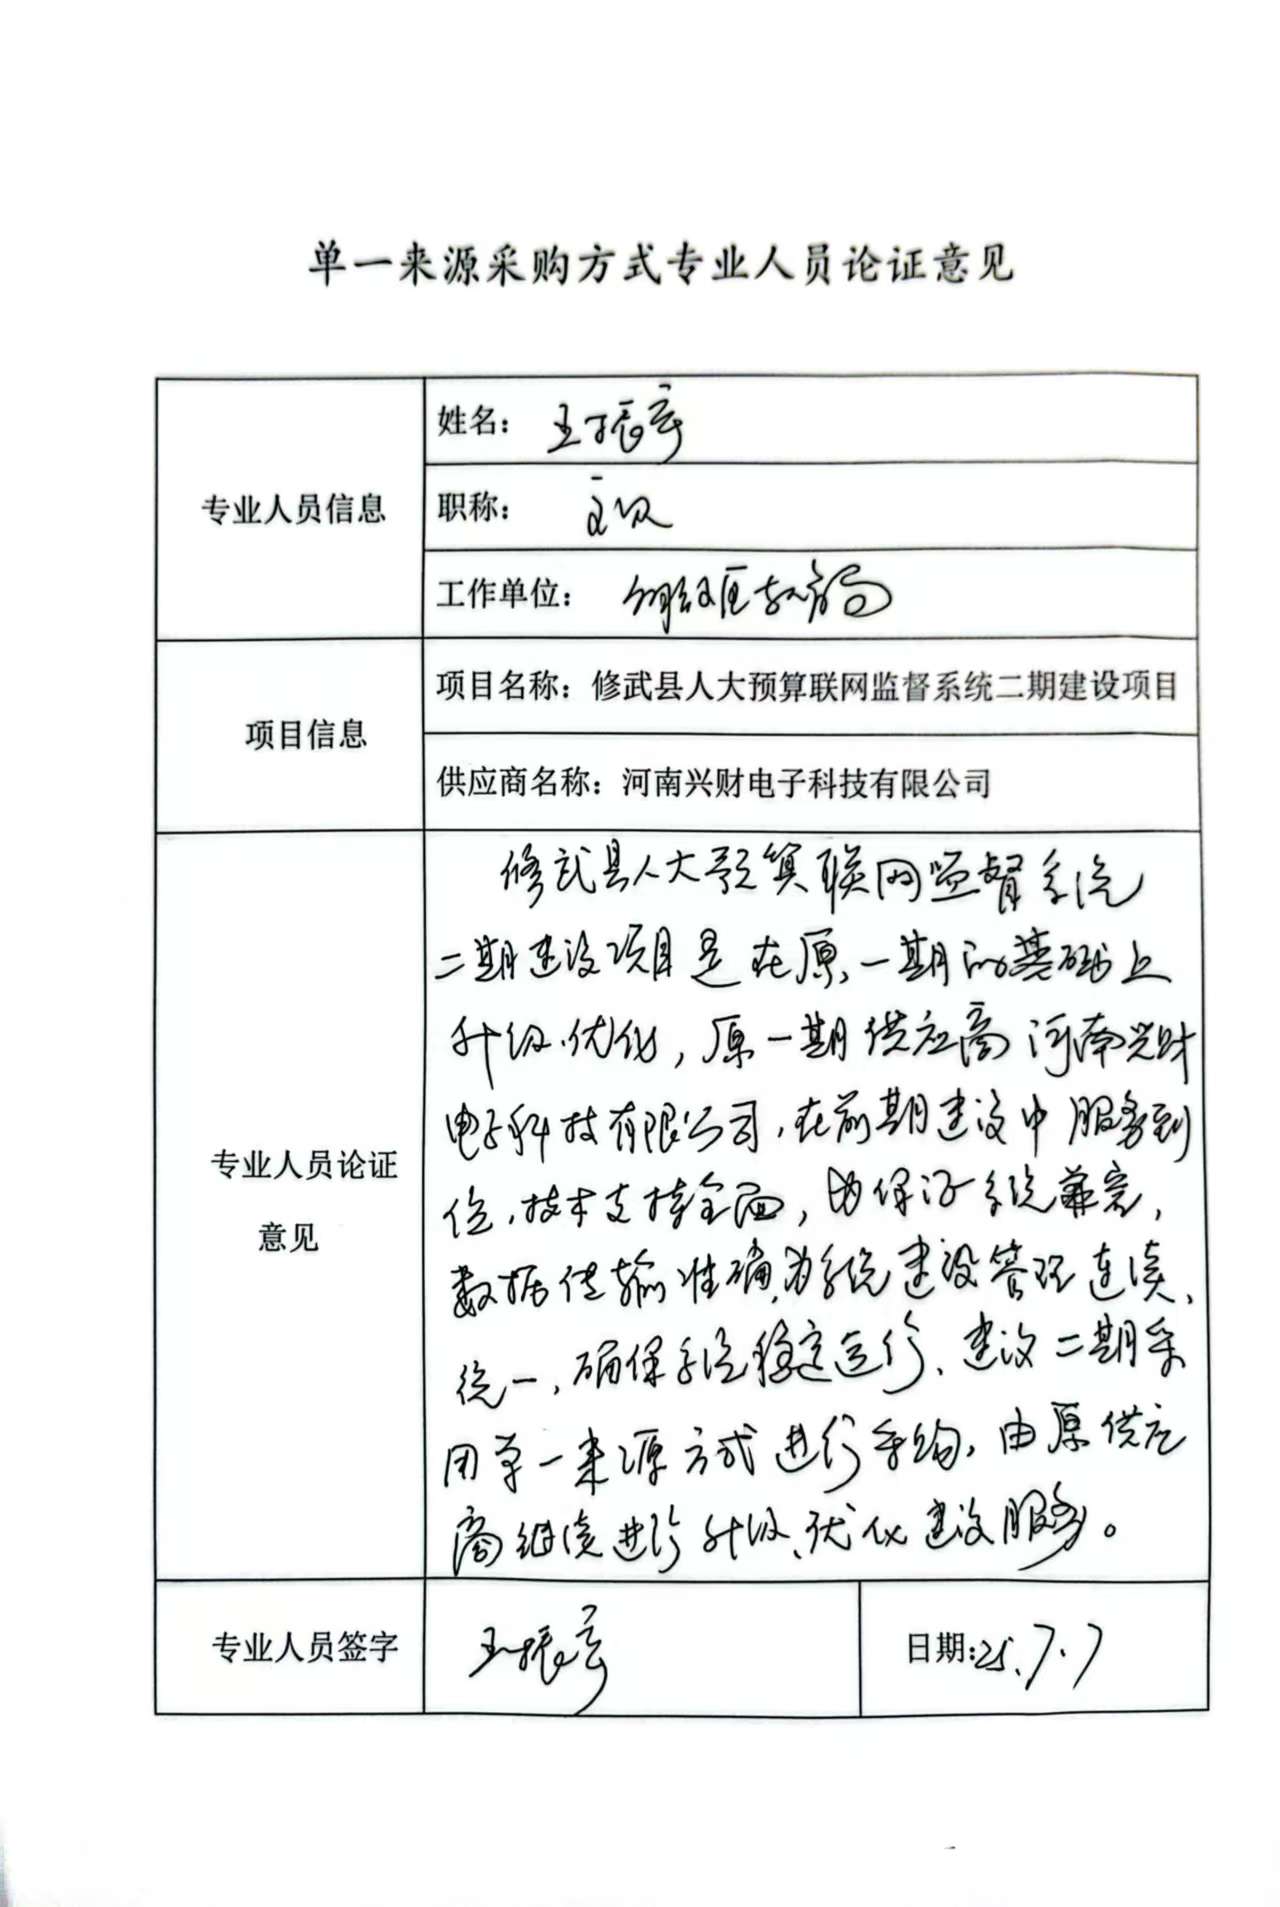 单一来源采购方式专业人员论证意见
专业人员信息
姓名：王振宇
职称：高级
工作单位：解放区教育局
项目信息
项目名称：修武县人大预算联网监督系统二期建设项目
供应商名称：河南兴财电子科技有限公司
专业人员论证
意见
修武县人大预算联网监督系统
二期建设项目是在原一期的基础上
升级优化，原一期供应商河南兴财
电子科技有限公司，在前期建设中服务到
位，技术支持全面，为保证系统兼容，
数据传输准确，为系统建设管理连续、
统一，确保系统稳定运行、建议二期采
用单一来源方式进行采购，由原供应
商继续进行升级、优化建设服务。
专业人员签字
王振宇
日期:25.7.7